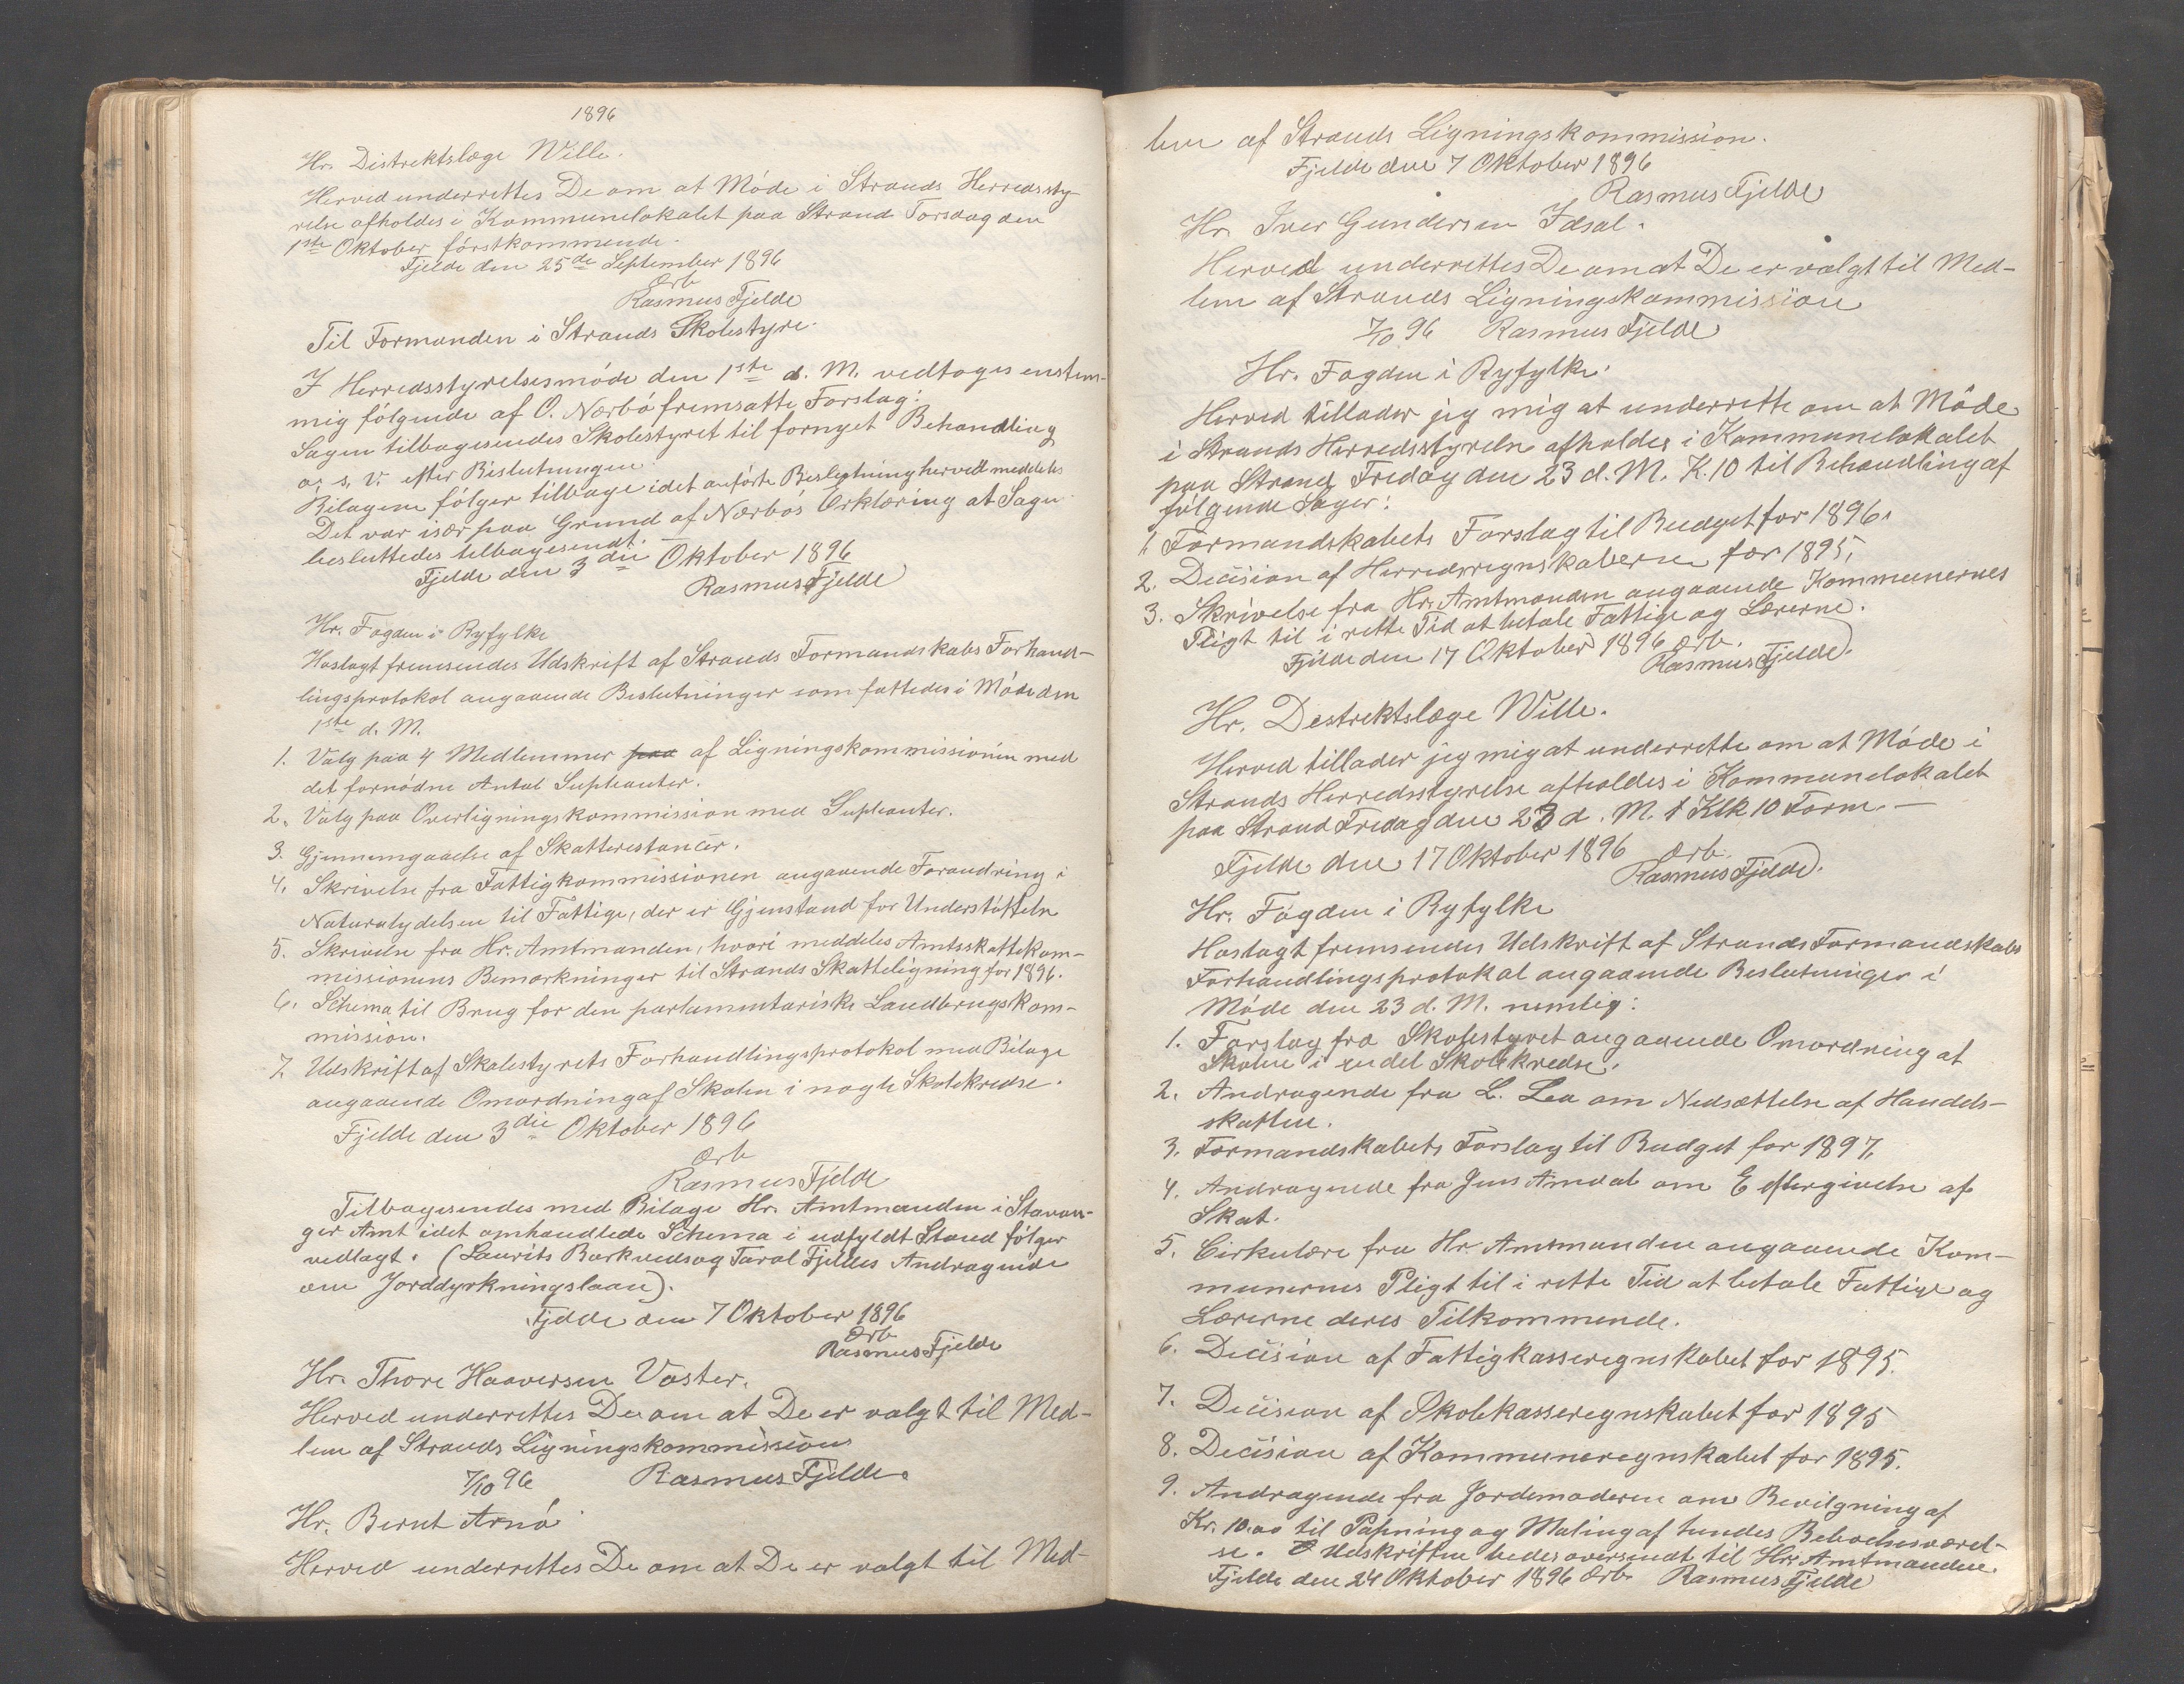 1896
Hr. Distriktslæge Wille.
Herved underrettes De om at Møde i Strands Herredssty-
relse afholdes i Kommunelokalet paa Strand Torsdag den
1ste Oktober førstkommende.
Fjelde den 25de September 1896
Ærb
Rasmus Fjelde
Til Formanden i Strands Skolestyre.
I Herredsstyrelsesmøde den 1ste d. M. vedtoges enstem-
mig følgende af O. Nærbø fremsatte Forslag:
Sagen tilbagesendes Skolestyret til fornyet Behandling
o. s. v. efter Beslutningen.
Bilagene følger tilbage idet anførte Beslutning herved meddeles
Det var især paa Grund af Nærbøs Erklæring at Sagen
besluttedes tilbagesendt.
Fjelde den 3die Oktober 1896
Rasmus Fjelde
Hr. Fogden i Ryfylke
Hoslagt fremsendes Udskrift af Strands Formandskabs Forhand-
lingsprotokol angaaende Beslutninger som fattedes i Møde den
1ste d. M.
1. Valg paa 4 Medlemmer paa af Ligningskommissionen med
det fornødne Antal Supleanter.
2. Valg paa Overligningskommission med Supleanter.
3. Gjennemgaaelse af Skatterestancer.
4. Skrivelse fra Fattigkommissionen angaaende Forandring i
Naturalydelsen til Fattige, der er Gjenstand for Understøttelse
5. Skrivelse fra Hr. Amtmanden, hvori meddeles Amtsskattekom-
missionens Bemærkninger til Strands Skatteligning for 1896.
6. Schema til Brug for den parlamentariske Landbrugskom-
mission.
7. Udskrift af Skolestyrets Forhandlingsprotokol med Bilage
angaaende Omordning af Skolen i nogle Skolekredse.
Fjelde den 3die Oktober 1896
Ærb
Rasmus Fjelde
Tilbagesendes med Bilage Hr. Amtmanden i Stavan-
ger Amt idet omhandlede Schema i udfyldt Stand følger
vedlagt. (Laurits Barkveds og Taral Fjeldes Andragende
om Jorddyrkningslaan).
Fjelde den 7 Oktober 1896
Ærb
Rasmus Fjelde
Hr. Thore Haaversen Vaster.
Herved underrettes De om at De er valgt til Med-
lem af Strands Ligningskommission
7/10 96 Rasmus Fjelde.
Hr. Bernt Arnø
Herved underrettes De om at De er valgt til Med-
lem af Strands Ligningskommission.
Fjelde den 7 Oktober 1896
Rasmus Fjelde
Hr. Iver Gundersen Idsal.
Herved underrettes De om at De er valgt til Med-
lem af Strands Ligningskommission
7/10 96 Rasmus Fjelde
Hr. Fogden i Ryfylke.
Herved tillader jeg mig at underrette om at Møde
i Strands Herredsstyrelse afholdes i Kommunelokalet
paa Strand Fredag den 23 d. M. K. 10 til Behandling af
følgende Sager:
1. Formandskabets Forslag til Budget for 1896.
2. Decision af Herredsregnskaberne for 1895.
3. Skrivelse fra Hr. Amtmanden angaaende Kommunernes
Pligt til i rette Tid at betale Fattige og Lærerne.
Fjelde den 17 Oktober 1896 Ærb.
Rasmus Fjelde.
Hr. Destrektslæge Wille.
Herved tillader jeg mig at underrette om at Møde i
Strands Herredsstyrelse afholdes i Kommunelokalet
paa Strand Fredag den 23 d. M. Klk 10 Form. —
Fjelde den 17 Oktober 1896 Ærb.
Rasmus Fjelde.
Hr. Fogden i Ryfylke
Hoslagt fremsendes Udskrift af Strands Formandskabs
Forhandlingsprotokol angaaende Beslutninger i
Møde den 23 d. M. nemlig:
1. Forslag fra Skolestyret angaaende Omordning af
Skolen i endel Skolekredse.
2. Andragende fra L. Lea om Nedsættelse af Handels-
skatten.
3. Formandskabets Forslag til Budget for 1897.
4. Andragende fra Jens Amdal om Eftergivelse af
Skat.
5. Cirkulære fra Hr. Amtmanden angaaende Kom-
munernes Pligt til i rette Tid at betale Fattige og
Lærerne deres Tilkommende.
6. Decision af Fattigkasseregnskabet for 1895.
7. Decision af Skolekasseregnskabet for 1895
8. Decision af Kommuneregnskabet for 1895.
9. Andragende fra Jordemoderen om Bevilgning af
Kr. 10.00 til Papning og Maling af hendes Beboelsesværel-
se. Udskriften bedes oversendt til Hr. Amtmanden.
Fjelde den 24 Oktober 1896 Ærb. Rasmus Fjelde